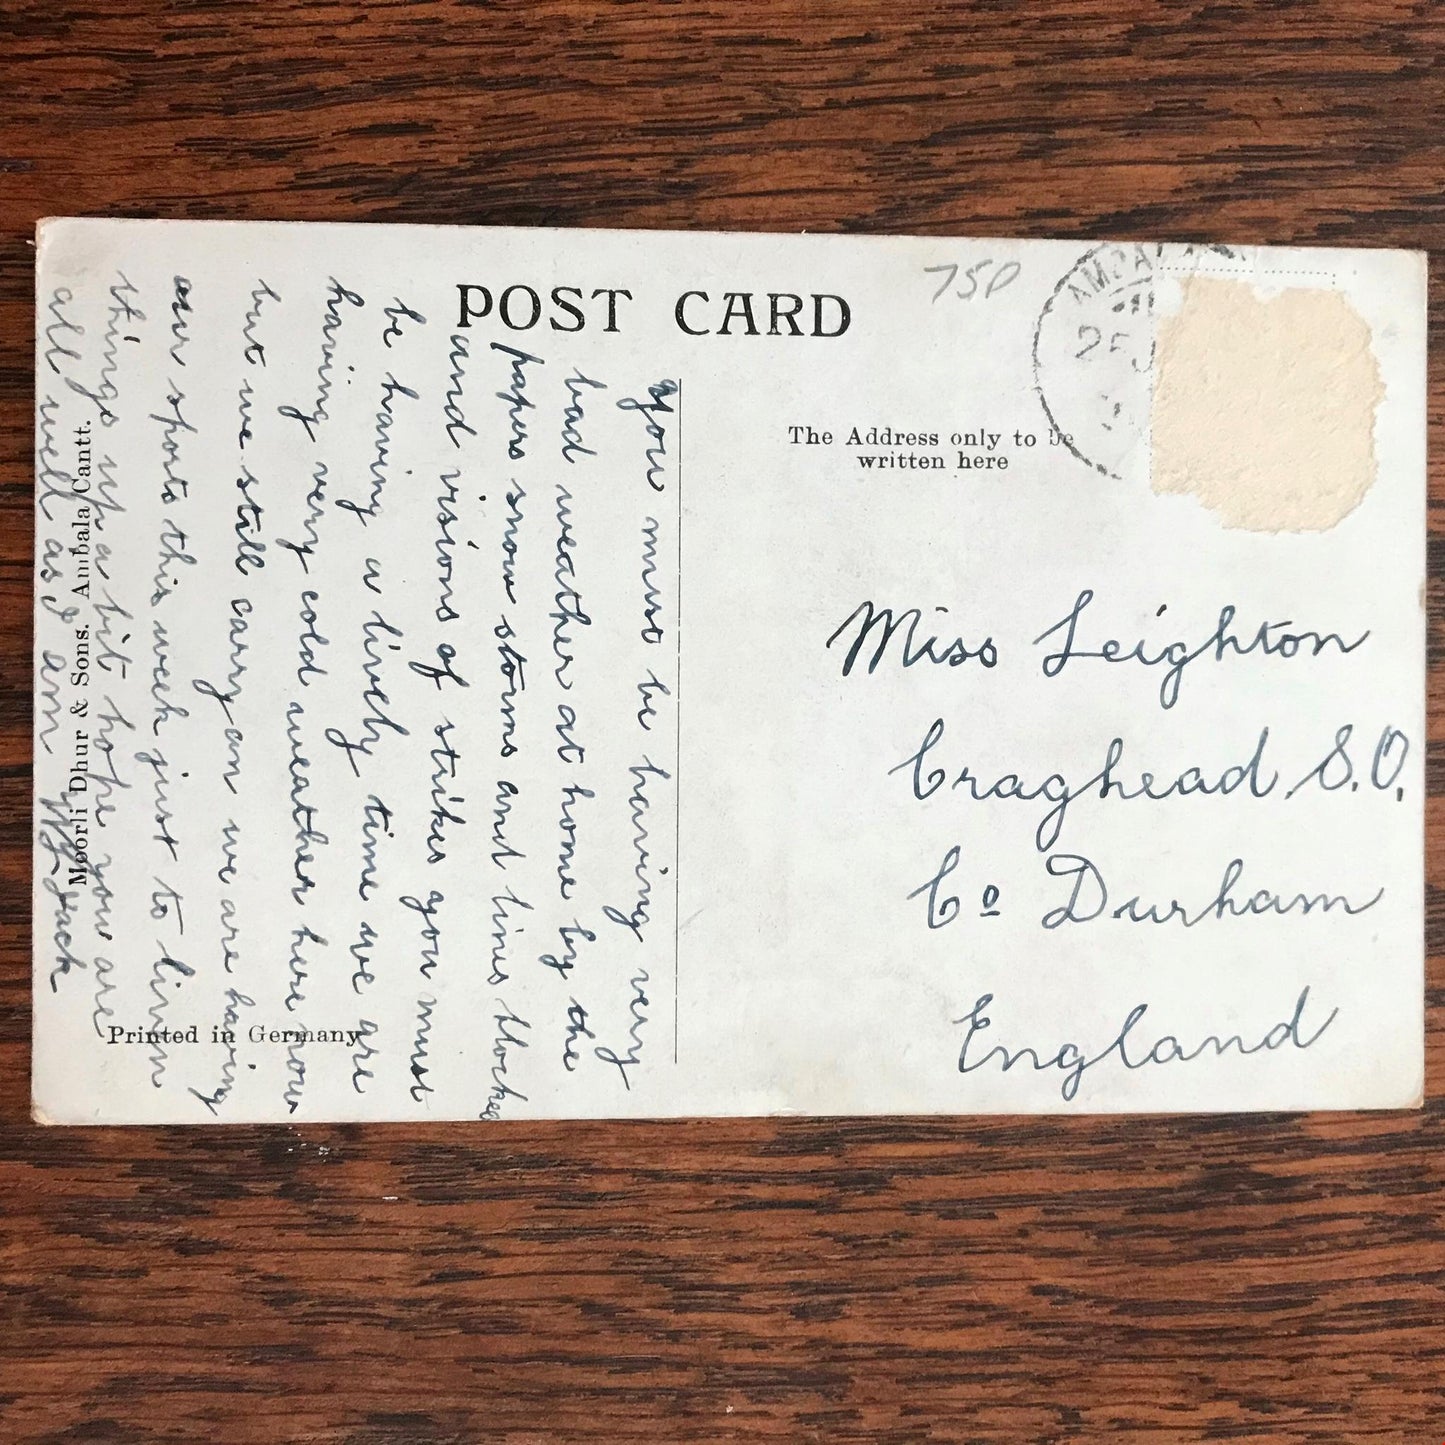 POST CARD
750
AMBALA
25
The Address only to be
written here
Miss Leighton
Craghead. S.O.
Co Durham
England
you must be having very
bad weather at home by the
papers snow storms and lines blocked
and visions of strikes you must
be having a lively time we are
having very cold weather here now
but we still carry on we are having
our sports this week just to liven
things up a bit hope you are
all well as I am Jack
Moorli Dhur & Sons. Ambala Cantt.
Printed in Germany